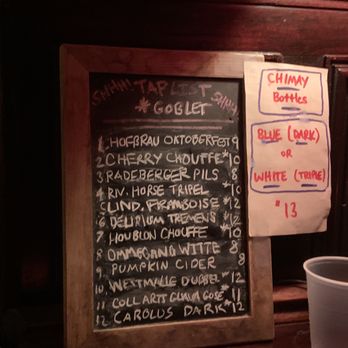 SHHH! TAP LIST SHHH!
*GOBLET
1. HOFBRAU OKTOBERFEST 9
2. CHERRY CHOUFFE* 10
3. RADEBERGER PILS 8
4. RIV. HORSE TRIPEL 10
5. LIND. FRAMBOISE 12
6. DELIRIUM TREMENS 12
7. HOUBLON CHOUFFE 10
8. OMMEGANG WITTE 8
9. PUMPKIN CIDER 8
10. WESTMALLE DUBBEL* 12
11. COLL ARTS GUAVA GOSE* 11
12. CAROLUS DARK* 12
CHIMAY
Bottles
BLUE (DARK)
OR
WHITE (TRIPLE)
$13